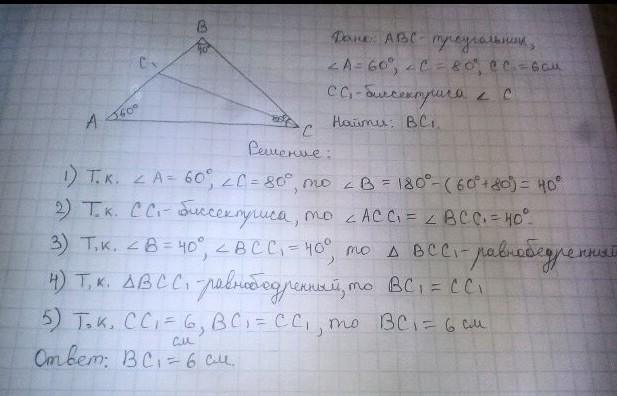 B
40°
C₁
60°
A
80°
C
Дано: ABC - треугольник,
∠A = 60°, ∠C = 80°, CC₁ = 6 см
CC₁ - биссектриса ∠ C
Найти: BC₁.
Решение:
1) Т.к. ∠A = 60°, ∠C = 80°, то ∠B = 180° - (60° + 80°) = 40°
2) Т.к. CC₁ - биссектриса, то ∠ACC₁ = ∠BCC₁ = 40°.
3) Т.к. ∠B = 40°, ∠BCC₁ = 40°, то △ BCC₁ - равнобедренный
4) Т.к. △BCC₁ - равнобедренный, то BC₁ = CC₁
5) Т.к. CC₁ = 6 см, BC₁ = CC₁, то BC₁ = 6 см
Ответ: BC₁ = 6 см.